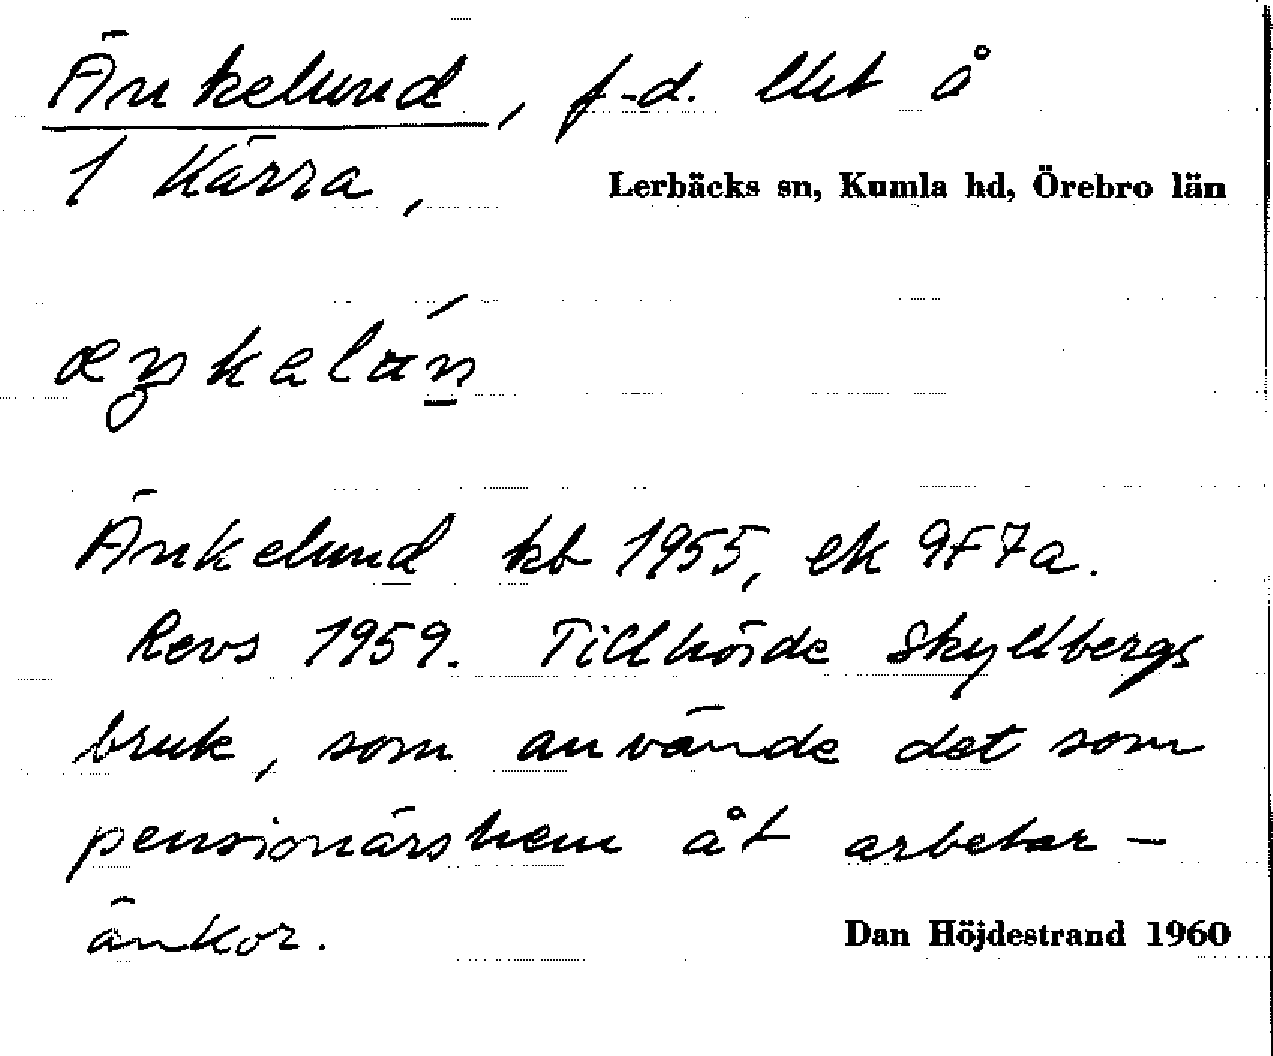 Änkelund, f.d. llt å
1 Kärra,
Lerbäcks sn, Kumla hd, Örebro län
æŋkalán
Änkelund kb 1955, ek 9F7a.
Revs 1959. Tillhörde Skyllbergs
bruk, som använde det som
pensionärshem åt arbetar-
änkor.
Dan Höjdestrand 1960